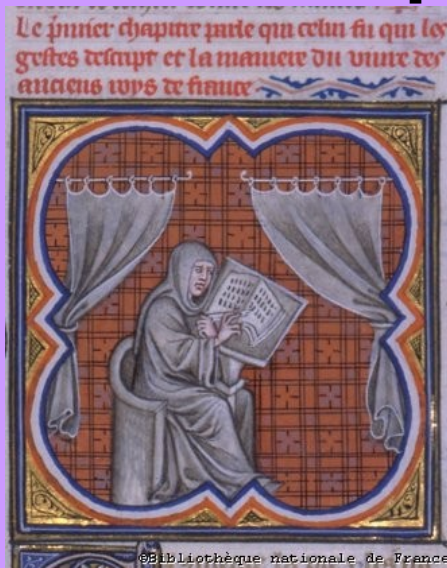 Le p̃mier chapitre parle qui celui fu qui les
gestes descript et la maniere du viure des
anciens roys de france
©Bibliothèque nationale de France